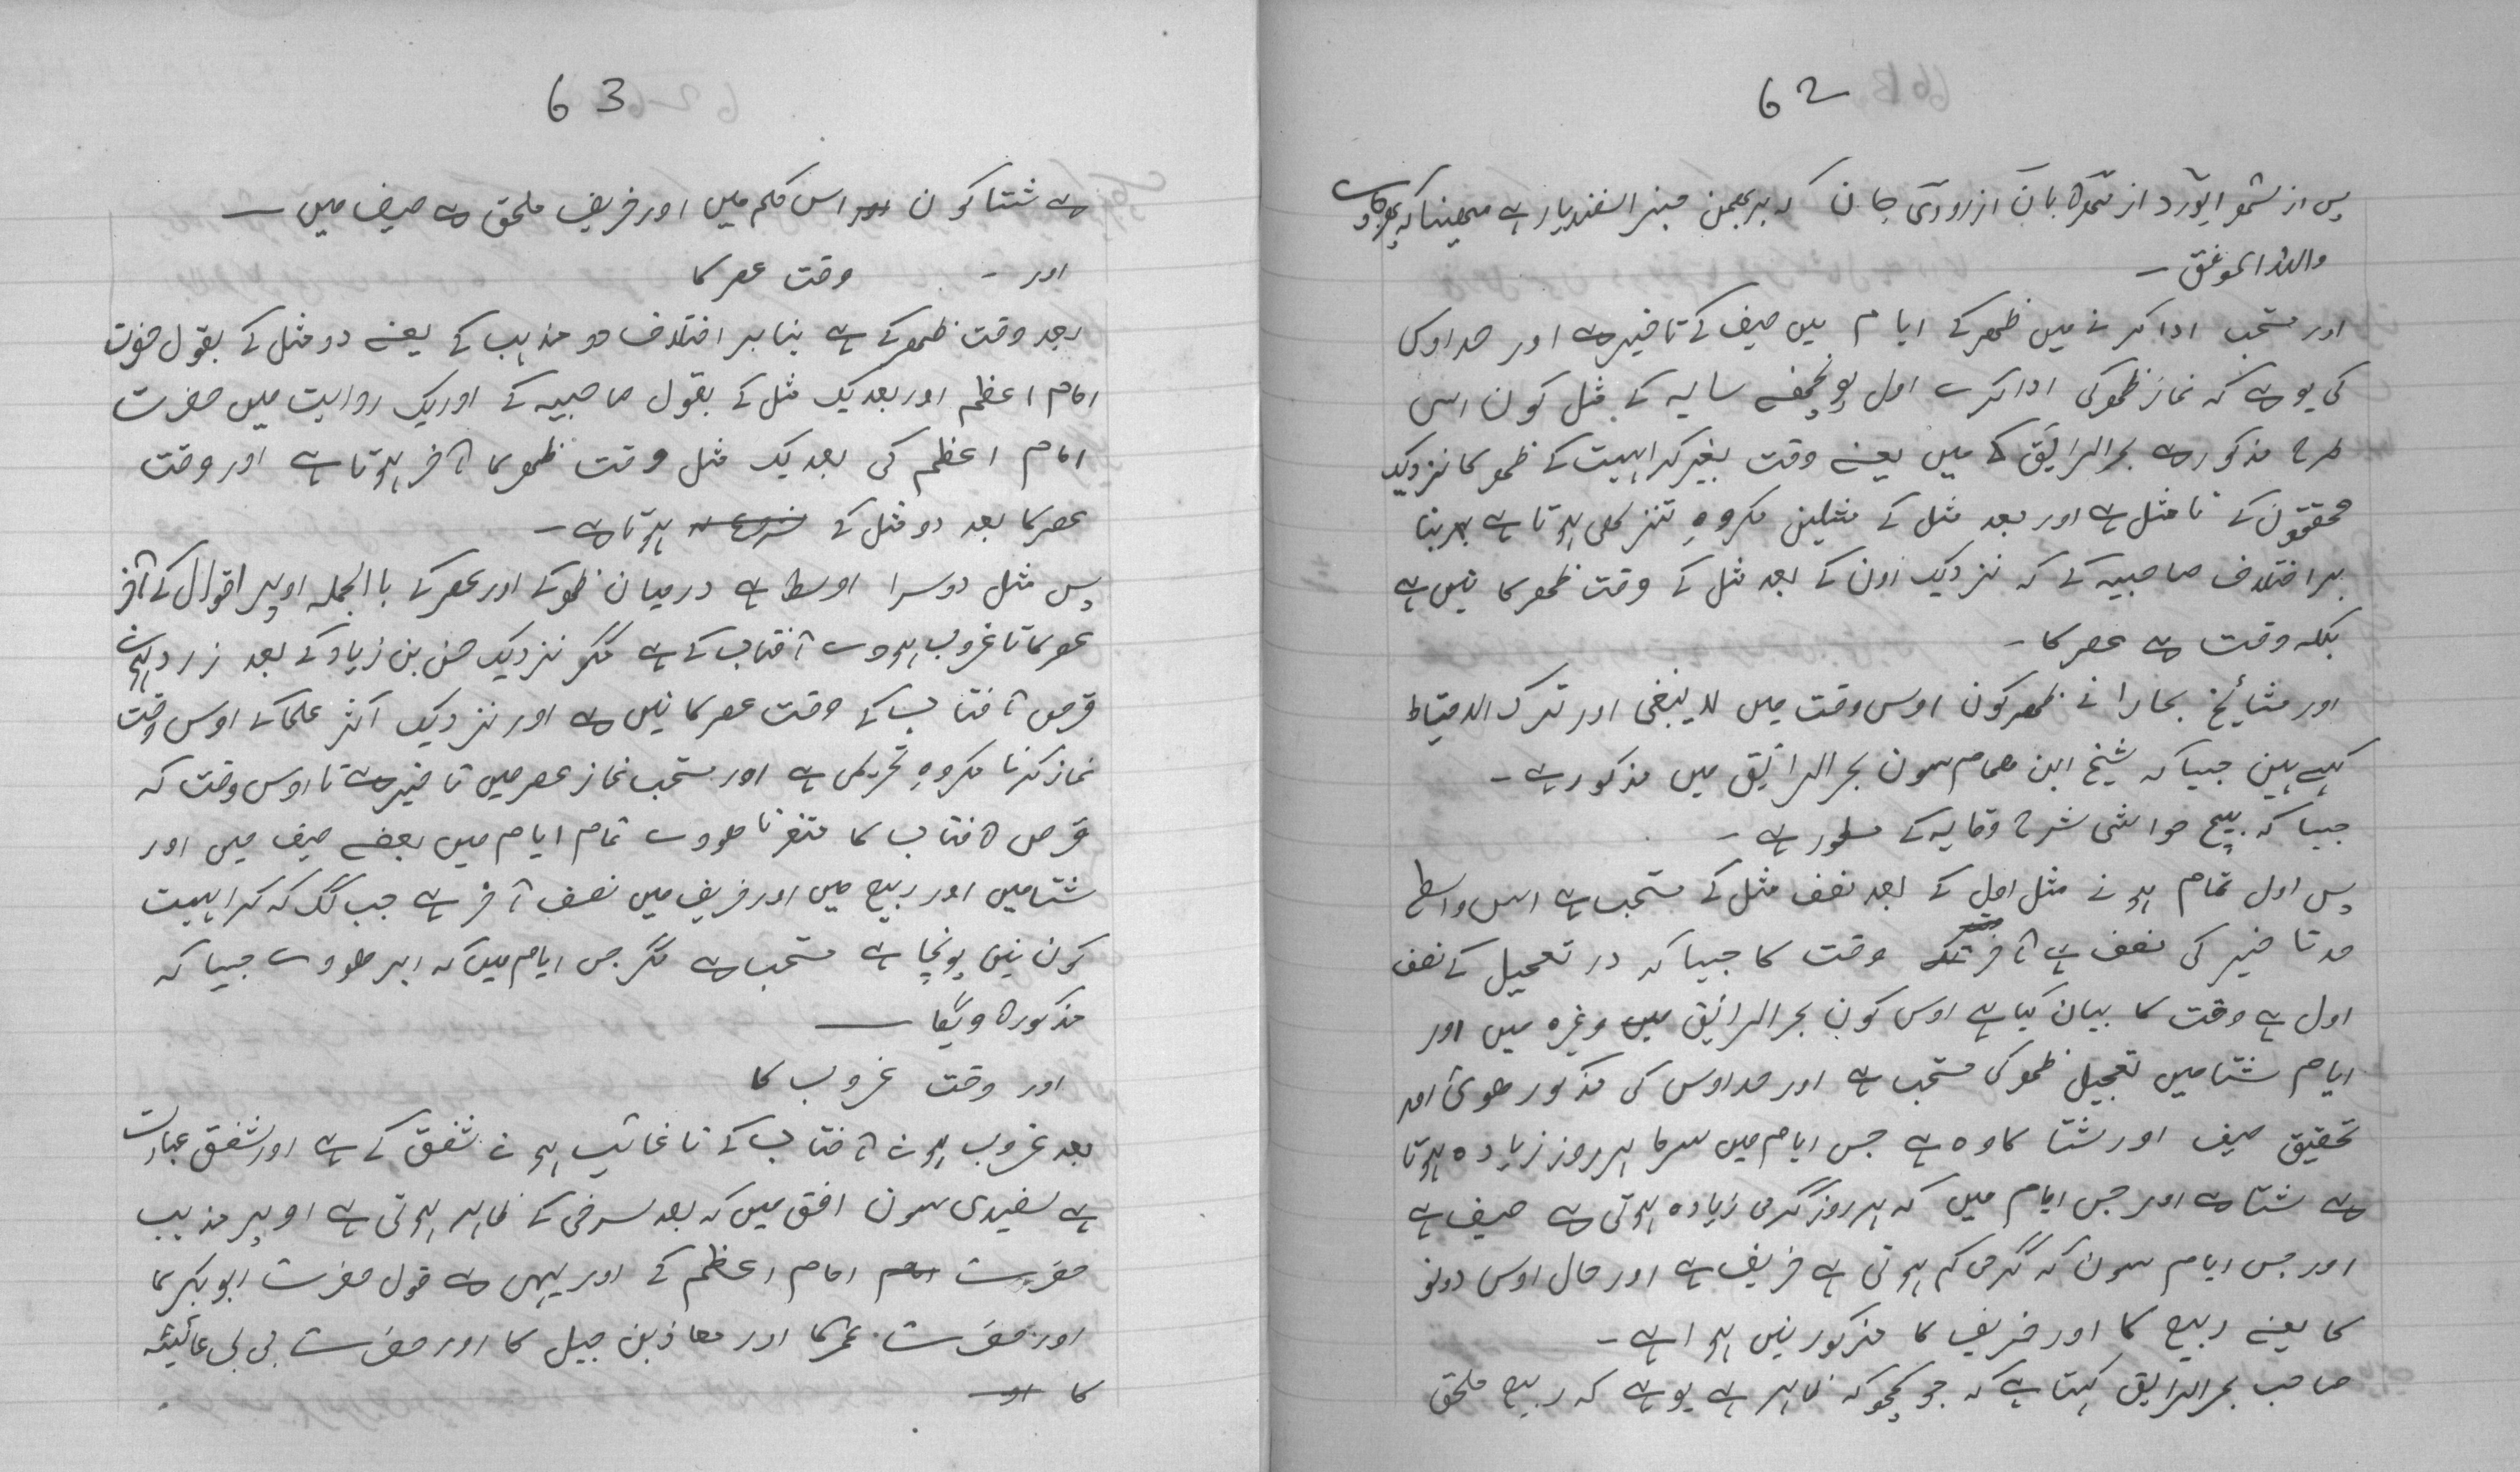 62
پس از لشمو ایورد از شمرہ بان از زوری جان کہ بر بہمن مبز اسفندیار ہے مہینا کہ
واللہ الموفق ۔
اور مستحب ادا کرنے میں ظھر کے ایام میں صیف کے تاخیر ہے اور حد اوس کی
کی یو ہے کہ نماز ظھر کی ادا کرے اول پونچھنے سایہ کے مثل کون اس
طرح مذکور ہے بحر الرایق کے میں یعنے وقت بغیر کراہیت کے ظھر کا نزدیک
محققون کے تا مثل ہے اور بعد مثل کے مثلین مکروہِ تنزیھی ہوتا ہے بہر بنا
بر اختلاف صاحبیہ کے کہ نزدیک اون کے بعد مثل کے وقت ظھر کا نیں ہے
بلکہ وقت ہے عصر کا ۔
اور مشایخ بخارا نے ظھر کون اوس وقت میں لا ینبغی اور ترک الاحتیاط
کہے ہین جیسا کہ شیخ ابن ھمام سون بحر الرایق میں مذکور ہے ۔
جیسا کہ بیچ حواشی شرح وقایہ کے مسطور ہے ۔
پس اول تمام ہونے مثل اول کے بعد نصف مثل کے مستحب ہے اس واسطے
حد تاخیر کی نصف ہے آخر وقت کا جیسا کہ در تعجیل کے نصف
اول ہے وقت کا بیان کیا ہے اوس کون بحر الرائق میں وغیرہ میں اور
ایام شتا میں تعجیل ظھر کی مستحب ہے اور حد اوس کی مذکور ھوئی اور
تحقیق صیف اور شتا کا وہ ہے جس ایام میں سرما ہر روز زیادہ ہوتا
ہے شتا ہے اور جس ایام میں کہ ہر روز گرمی زیادہ ہوتی ہے صیف ہے
اور جس ایام سون کہ گرمی کم ہوتی ہے خریف ہے اور حال اوس دونو
کا یعنے ربیع کا اور خریف کا مذکور نیں ہوا ہے ۔
صاحب بحر الرایق کہتا ہے کہ جو کچھو کہ ظاہر ہے یو ہے کہ ربیع ملحق
63
ہے شتا کون اس حکم میں اور خریف ملحق ہے صیف میں ۔
اور ۔ وقت عصر کا
بعد وقت ظھر کے ہے بنا بر اختلاف دو مذہب کے یعنے دو مثل کے بقول حضرت
امام اعظم اور بعد یک مثل کے بقول صاحبیہ کے اور یک روایت میں حضرت
امام اعظم کی بعد یک مثل وقت ظھر کا آخر ہوتا ہے اور وقت
عصر کا بعد دو مثل کے ہوتا ہے ۔
پس مثل دوسرا اوسط ہے درمیان ظھر کے اور عصر کے با الجملہ اوپر اقوال کے آخر
عصر کا تا غروب ہووے آفتاب کے ہے مگر نزدیک حسن بن زیاد کے بعد زرد ہونے
قرص آفتاب کے وقت عصر کا نیں ہے اور نزدیک اکثر علما کے اوس وقت
نماز کرنا مکروہِ تحریمی ہے اور مستحب نماز عصر میں تاخیر ہے تا اوس وقت کہ
قرص آفتاب کا متغر نا ھووے تمام ایام میں بعضے صیف میں اور
شتا میں اور ربیع میں اور خریف میں نصف آخر ہے جب لگ کہ کراہیت
کون نیں پونچا ہے مستحب ہے مگر جس ایام میں کہ ابر ھووے جیسا کہ
مذکورہ ویگا ۔
اور وقت غروب کا
بعد غروب ہونے آفتاب کے تا غائب ہونے شفق کے ہے اور شفق عبارت
ہے سفیدی سون افق میں کہ بعد سرخی کے ظاہر ہوتی ہے اوپر مذہب
حضرت امام اعظم کے اور یہی ہے قول حضرت ابو بکر کا
اور حضرت عمر کا اور معاذ بن جبل کا اور حضرت بی بی عائیشہ
کا